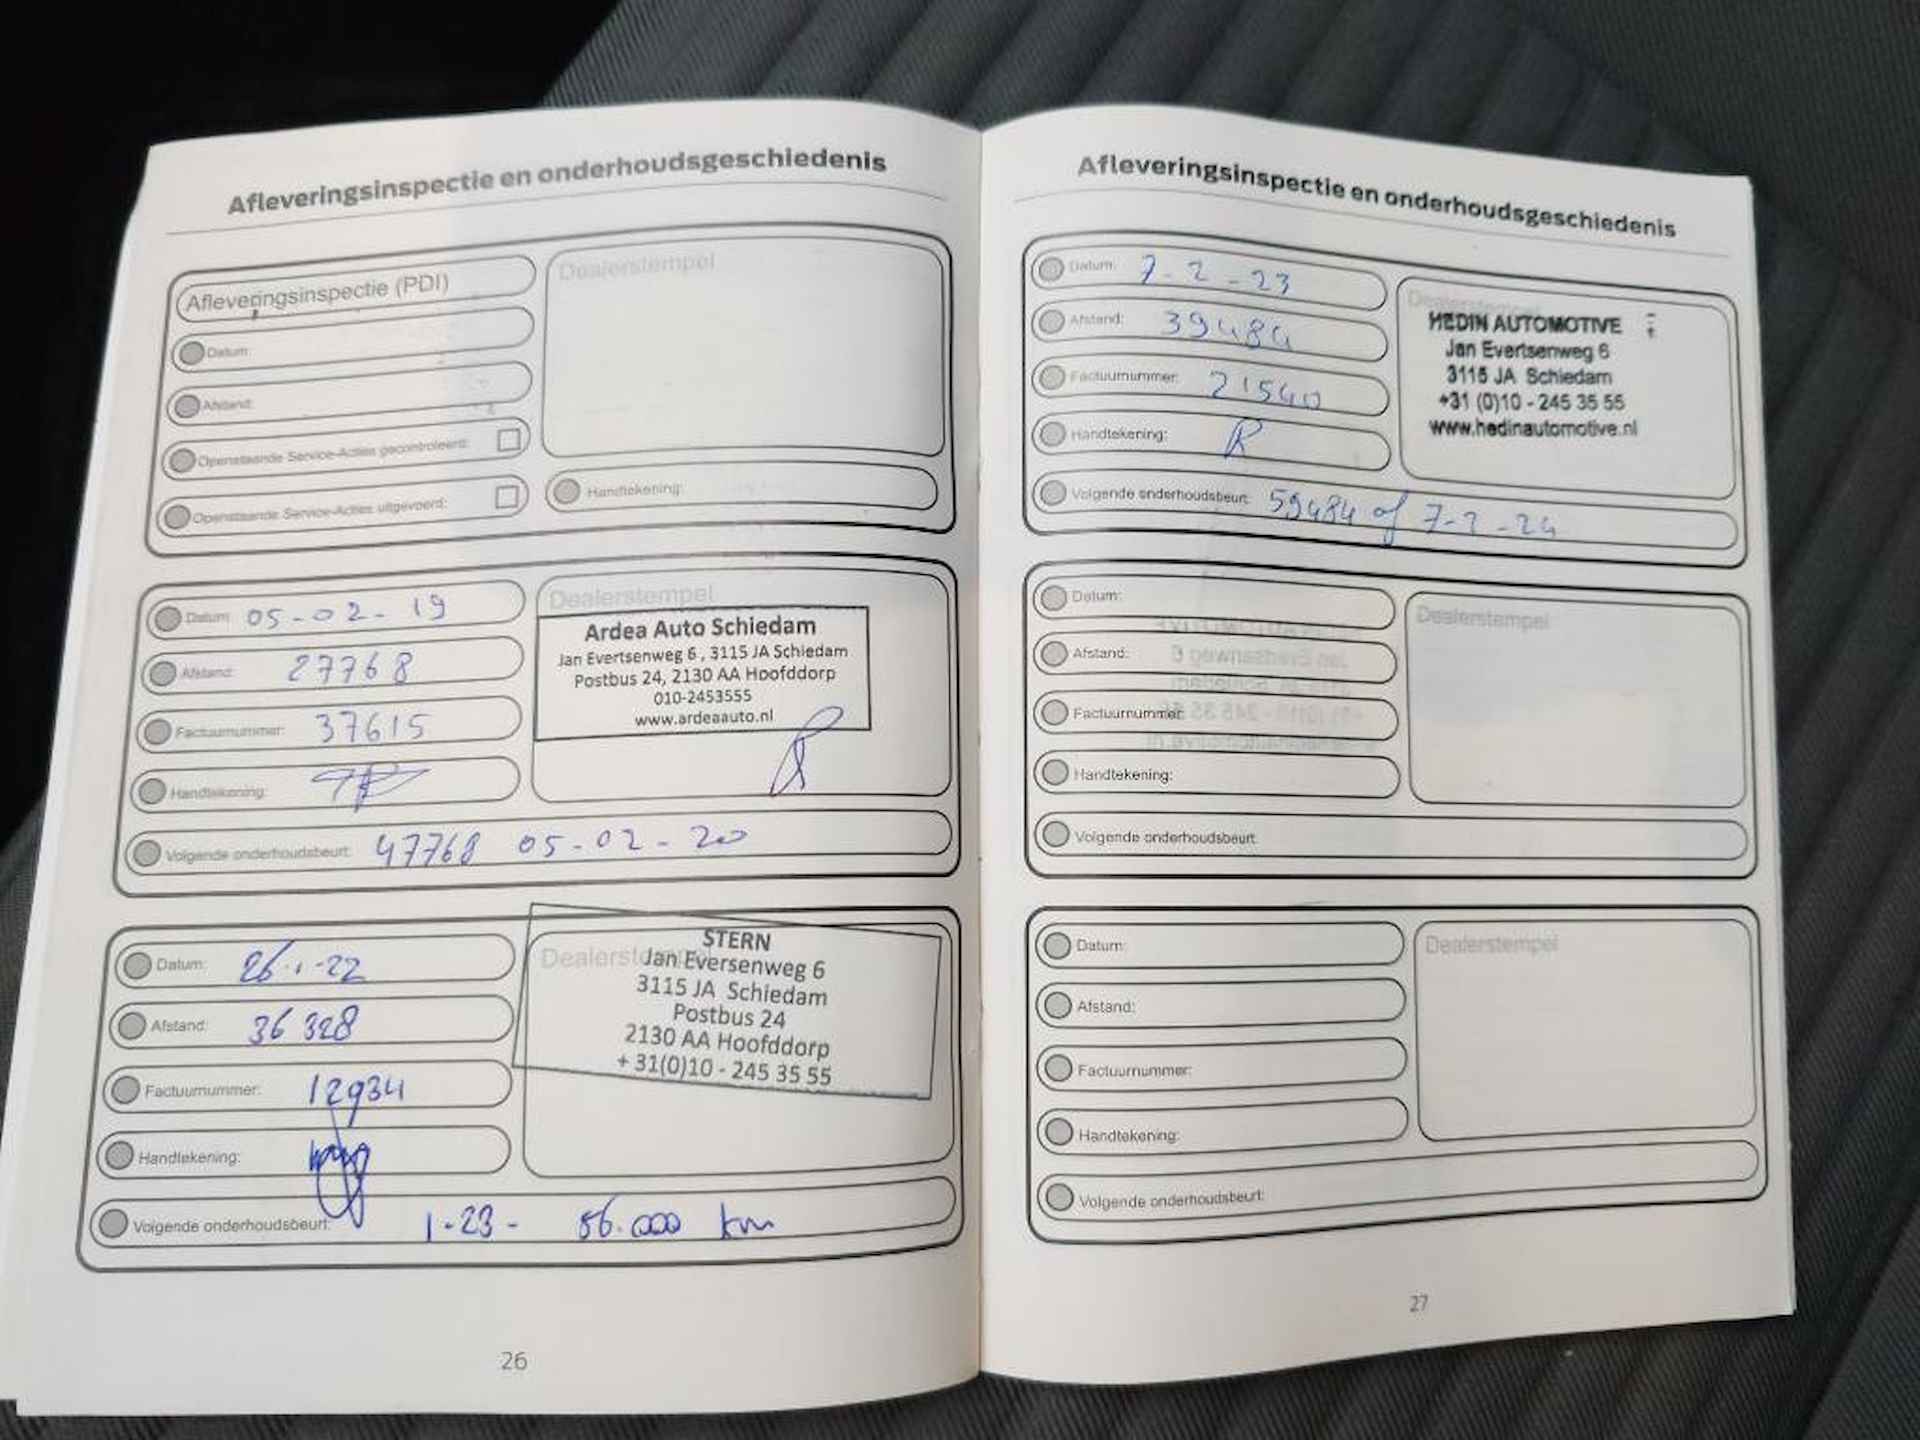 Afleveringsinspectie en onderhoudsgeschiedenis
Afleveringsinspectie (PDI)
Datum:
Afstand:
Openstaande Service-Acties gecontroleerd:
Openstaande Service-Acties uitgevoerd:
Dealerstempel
Handtekening:
Datum: 05-02-19
Afstand: 27768
Factuurnummer: 37615
Handtekening:
Dealerstempel
Ardea Auto Schiedam
Jan Evertsenweg 6, 3115 JA Schiedam
Postbus 24, 2130 AA Hoofddorp
010-2453555
www.ardeaauto.nl
Volgende onderhoudsbeurt: 47768 05-02-20
Datum: 26-1-22
Afstand: 36 328
Factuurnummer: 12934
Handtekening:
Dealerstempel
STERN
Jan Eversenweg 6
3115 JA Schiedam
Postbus 24
2130 AA Hoofddorp
+31(0)10 - 245 35 55
Volgende onderhoudsbeurt: 1-23- 56.000 km
26
Afleveringsinspectie en onderhoudsgeschiedenis
Datum: 7-2-23
Afstand: 39484
Factuurnummer: 21540
Handtekening:
Dealerstempel
HEDIN AUTOMOTIVE
Jan Evertsenweg 6
3115 JA Schiedam
+31 (0)10 - 245 35 55
www.hedinautomotive.nl
Volgende onderhoudsbeurt: 59484 of 7-2-24
Datum:
Afstand:
Factuurnummer:
Handtekening:
Dealerstempel
Volgende onderhoudsbeurt:
Datum:
Afstand:
Factuurnummer:
Handtekening:
Dealerstempel
Volgende onderhoudsbeurt:
27